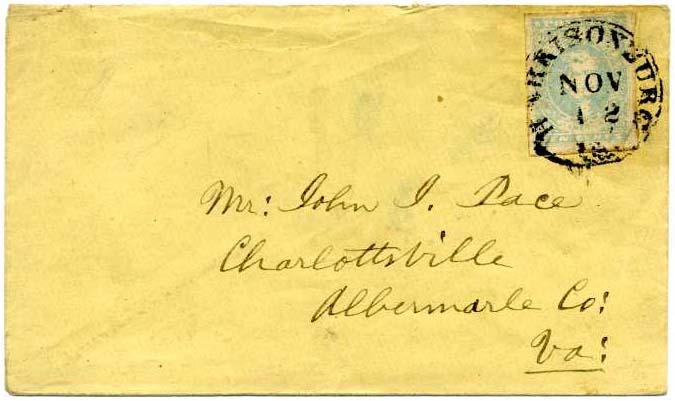 HARRISONBURG
NOV
12
Mr: John I. Pace
Charlottsville
Albermarle Co:
Va: